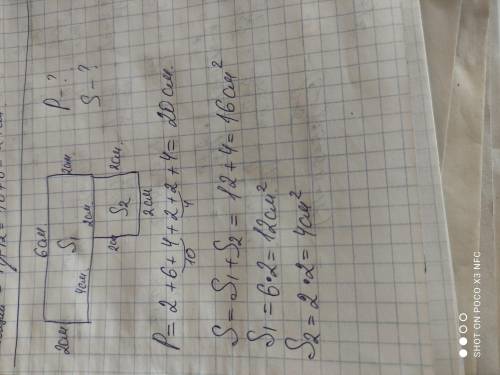 6см
2см
S₁
2см.
4см
2см
2см
S₂
2см.
2см
P - ?
S - ?
P = 2 + 6 + 4 + 2 + 2 + 4 = 20 см.
10
4
S = S₁ + S₂ = 12 + 4 = 16 см²
S₁ = 6 · 2 = 12 см²
S₂ = 2 · 2 = 4 см²
SHOT ON POCO X3 NFC